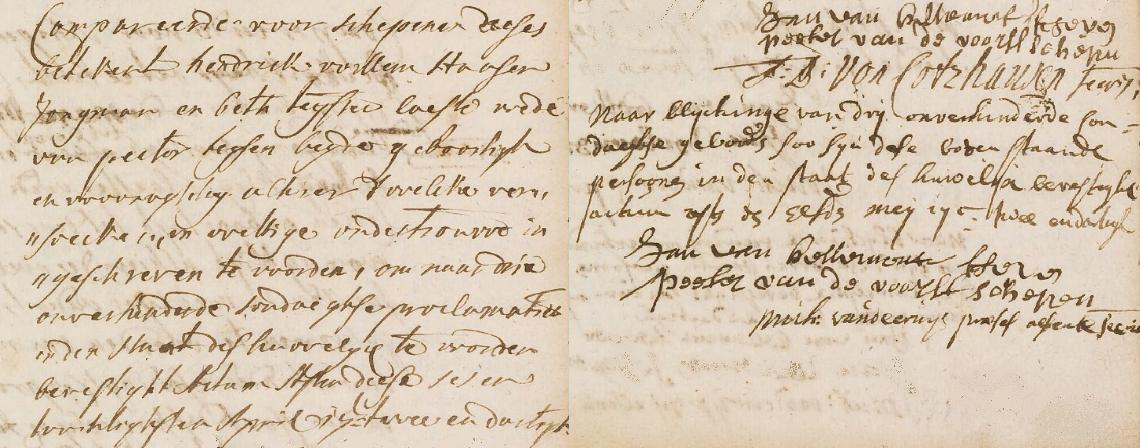 Compareerde voor schepenen deeses
betekent hendrick willem Hansen
Jongman en beth teyssen laeste wede
van peeter teyssen beyde geboortigh
en woonagtig alhier dewelcke vers
ysoecken, en wettige ondertrouwe in
ygeschreven te worden, om naar drie
onverhinderde sondaeghse proclamatien
in den staat des huwelyx te worden
bevestight Actum Asten deese ses en
twintighsten April 17 twee en dartigh
Jan van bellemont schepen
peeter van de voort schepen
von Cotzhausen secrs
Naar blijckinge van drij onverhinderde son=
daeghse geboods soo syn dese boven staande
persoonen in den staat des huwelijx bevestight
actum asten den elfden meij 17c twee en dartigh
Jan van bellemont schepen
peeter van de voort schepen